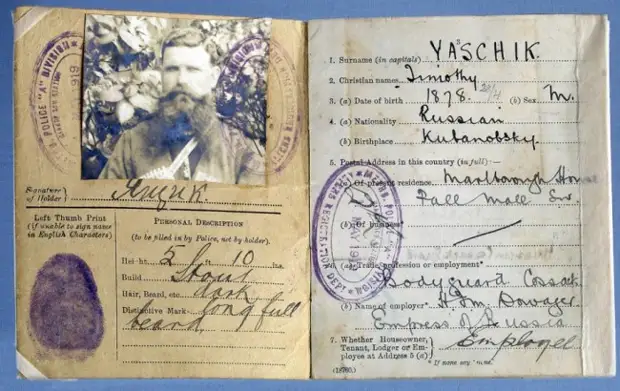 POLICE "A" DIVISION
1919
Signature of Holder
Left Thumb Print
(if unable to sign name
in English Characters)
PERSONAL DESCRIPTION
(to be filled in by Police, not by holder).
Height 5 ft. 10 ins.
Build Stout
Hair, Beard, etc. dark
Distinctive Mark long full
beard
1. Surname (in capitals) YASCHIK.
2. Christian names Timothy
3. (a) Date of birth 1878. (b) Sex M.
4. (a) Nationality Russian
(b) Birthplace Kubanobsky
5. Postal Address in this country (in full):—
(a) Of present residence. Marlborough House
Pall Mall S.W.
(b) Of business
6. (a) Trade, profession or employment*
Bodyguard Cossack
(b) Name of employer* H.I.M. Dowager
Empress of Russia
7. Whether Householder,
Tenant, Lodger or Em-
ployee at Address 5 (a) Employee
* If none say "none."
(18760.)
METRO. POLICE
ALIENS REGISTRATION DEPT
MAY 191